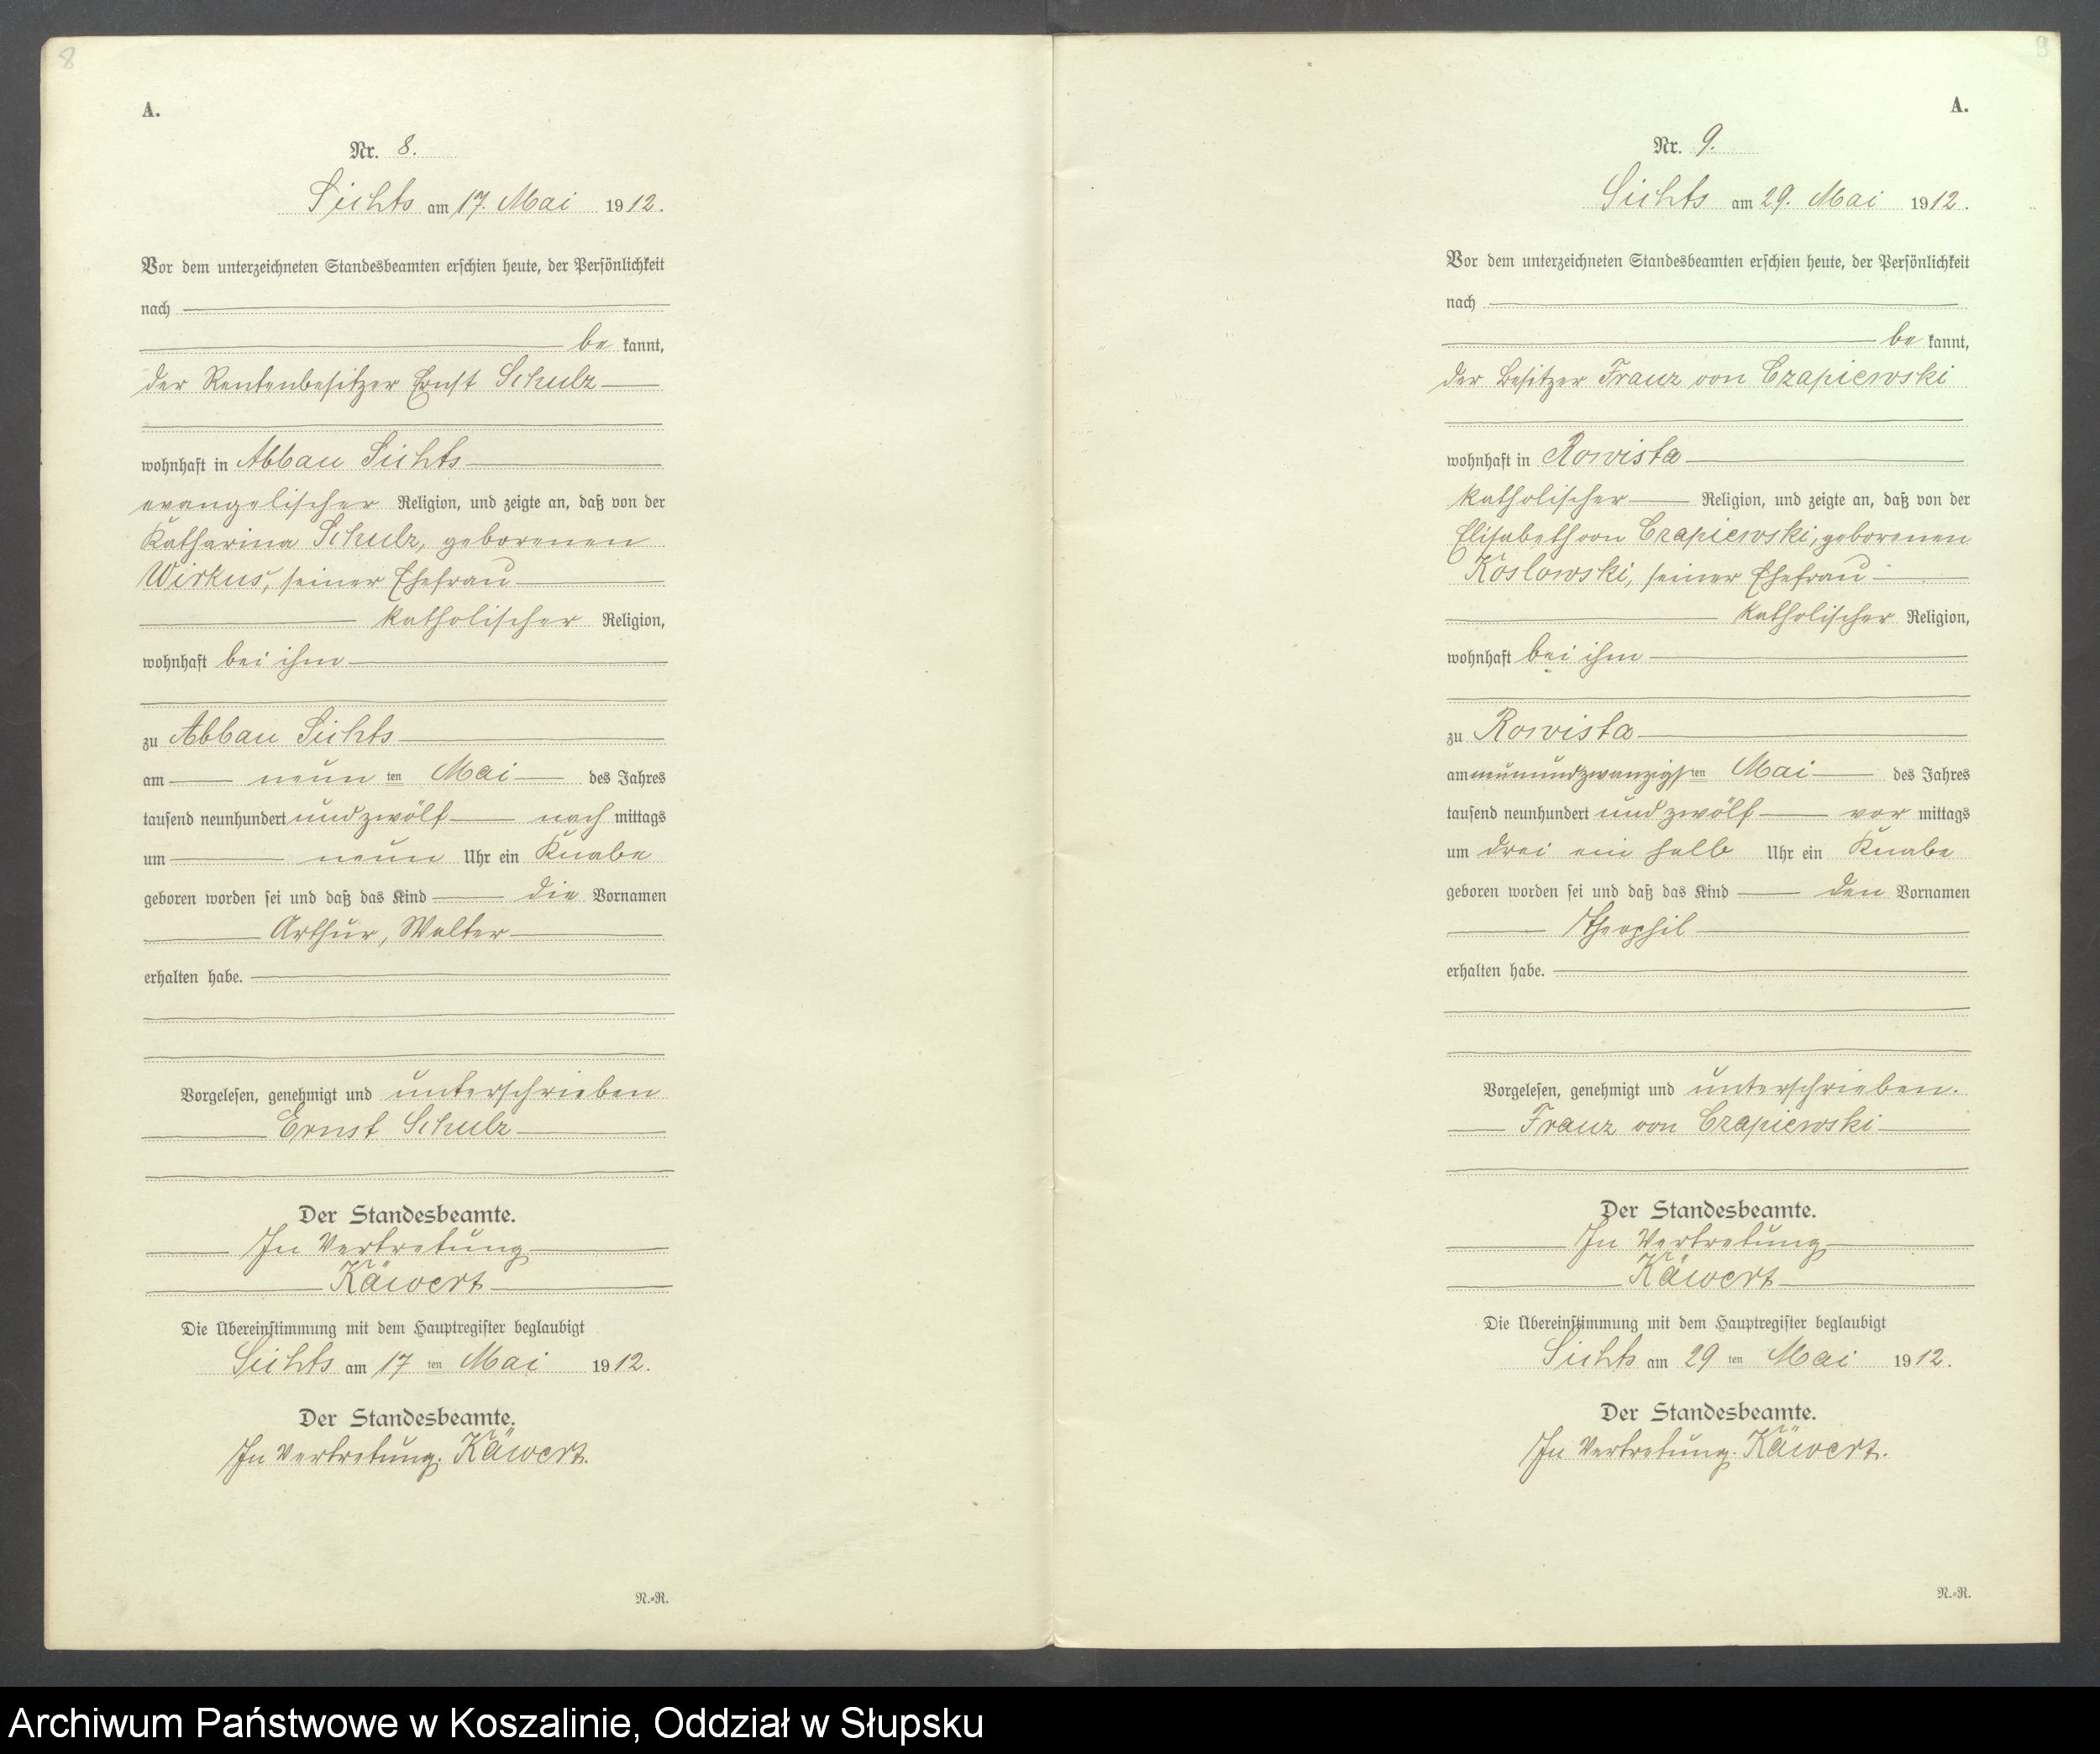 8
A.
Nr. 8.
Sichts am 17. Mai 1912.
Vor dem unterzeichneten Standesbeamten erschien heute, der Persönlichkeit
nach
be kannt,
der Rentenbesitzer Ernst Schulz
wohnhaft in Abbau Sichts
evangelischer Religion, und zeigte an, daß von der
Katharina Schulz, geborenen
Wirkus, seiner Ehefrau
katholischer Religion,
wohnhaft bei ihm
zu Abbau Sichts
am neun ten Mai des Jahres
tausend neunhundert und zwölf nach mittags
um neun Uhr ein Knabe
geboren worden sei und daß das Kind die Vornamen
Arthur, Walter
erhalten habe.
Vorgelesen, genehmigt und unterschrieben
Ernst Schulz
Der Standesbeamte.
In Vertretung
Käwert
Die Übereinstimmung mit dem Hauptregister beglaubigt
Sichts am 17 ten Mai 1912.
Der Standesbeamte.
In Vertretung. Käwert.
N.-R.
9
A.
Nr. 9.
Sichts am 29. Mai 1912.
Vor dem unterzeichneten Standesbeamten erschien heute, der Persönlichkeit
nach
be kannt,
der Besitzer Franz von Czapiewski
wohnhaft in Rowista
katholischer Religion, und zeigte an, daß von der
Elisabeth von Czapiewski, geborenen
Koslowski, seiner Ehefrau
katholischer Religion,
wohnhaft bei ihm
zu Rowista
am neunundzwanzigsten Mai des Jahres
tausend neunhundert und zwölf vor mittags
um drei ein halb Uhr ein Knabe
geboren worden sei und daß das Kind den Vornamen
Theophil
erhalten habe.
Vorgelesen, genehmigt und unterschrieben.
Franz von Czapiewski
Der Standesbeamte.
In Vertretung
Käwert
Die Übereinstimmung mit dem Hauptregister beglaubigt
Sichts am 29 ten Mai 1912.
Der Standesbeamte.
In Vertretung. Käwert.
N.-R.
Archiwum Państwowe w Koszalinie, Oddział w Słupsku